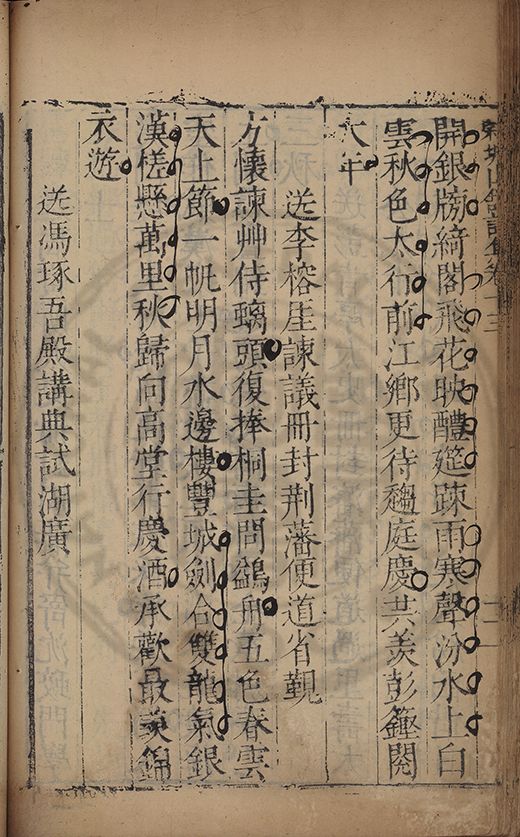 卷十三
開銀牓綺閣飛花映醴筵疎雨寒聲汾水上白
雲秋色太行前江鄉更待趨庭慶共羡彭籛閱
大年
送李榕厓諫議冊封荆藩便道省覲
方懷諫艸侍螭頭復捧桐圭問鷁舟五色春雲
天上節一帆明月水邊樓豐城劍合雙龍氣銀
漢槎懸萬里秋歸向高堂行慶酒承歡最羡錦
衣遊
送馮琢吾殿講典試湖廣